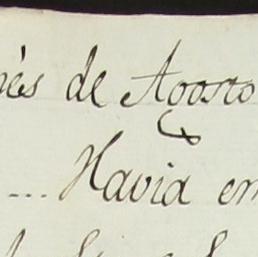 mês de Agosto
... Havia em